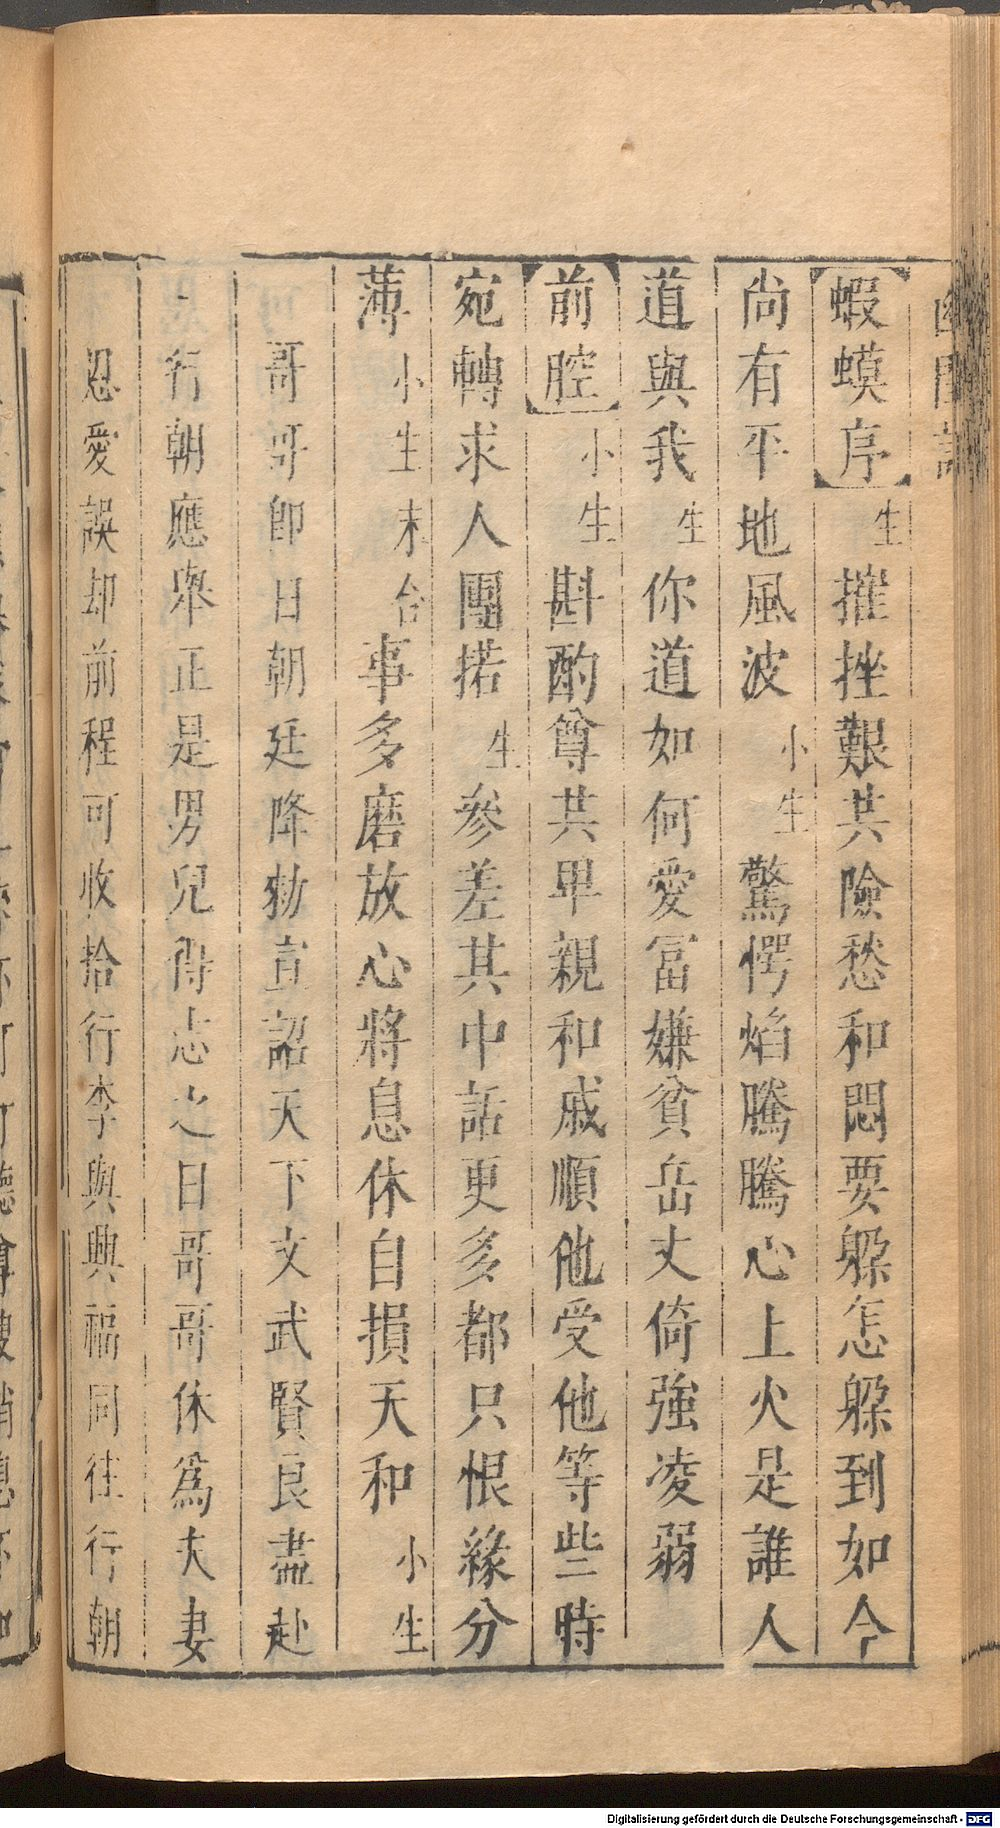 蝦蟆序 生 摧挫艱共險愁和悶要躱怎躱到如今
尚有平地風波 小生 驚愕焰騰騰心上火是誰人
道與我 生 你道如何愛冨嫌貧岳丈倚強凌弱
前腔 小生 斟酌尊共卑親和戚順他受他等些時
宛轉求人團掿 生 參差其中話更多都只恨緣分
薄 小生 末合 事多磨放心將息休自損天和 小生
哥哥即日朝廷降勑宣詔天下文武賢良盡赴
行朝應舉正是男兒得志之日哥哥休為夫妻
恩愛誤却前程可收拾行李與興福同往行朝
Digitalisierung gefördert durch die Deutsche Forschungsgemeinschaft - DFG